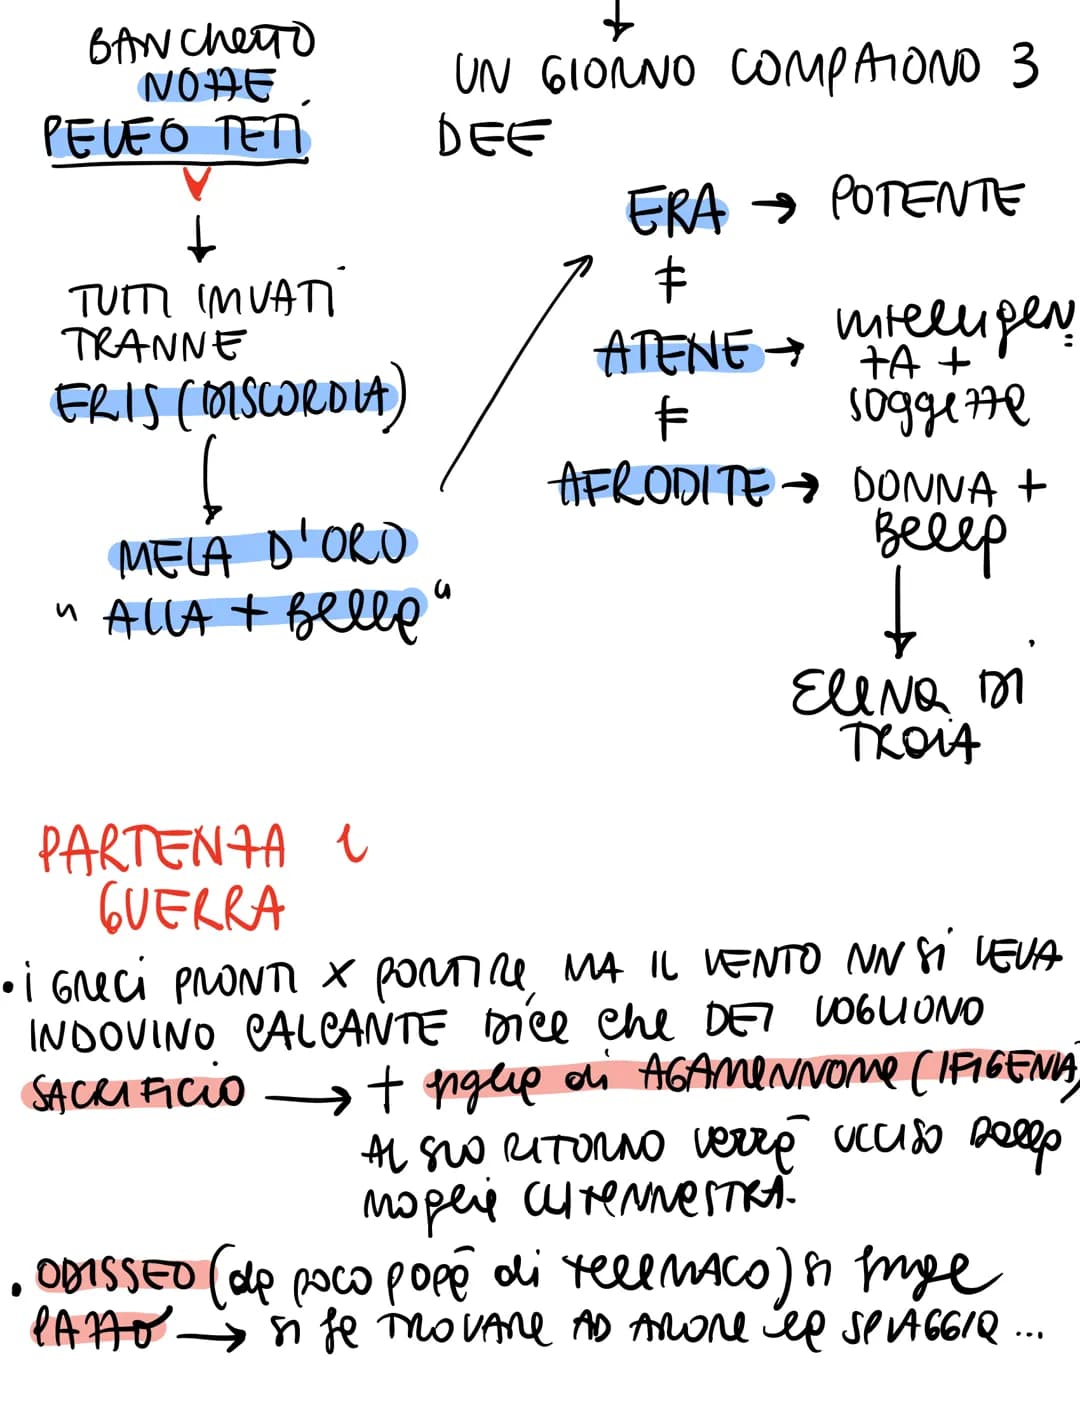 BANCHETTO
NOZZE
PELEO TETI
TUTTI INVITATI
TRANNE
ERIS (DISCORDIA)
MELA D'ORO
" ALLA + BELLA "
UN GIORNO COMPAIONO 3
DEE
ERA → POTENTE
≠
ATENE → intelligen
tA +
soggezze
≠
AFRODITE → DONNA +
Bella
ELENA DI
TROIA
PARTENZA
GUERRA
• i GReCi PRONTI X PARTIRE, MA IL VENTO NN SI LEVA
INDOVINO CALCANTE DICE che DEI VOGLIONO
SACRIFICIO → + figlia di AGAMENNONE (IFIGENIA)
AL SUO RITORNO verrà UCCISO DALLA
MOGLIE CLITENNESTRA.
• ODISSEO (da poco papà di TELEMACO) si finge
PAZZO → si fa TROVARE AD ARARE la SPIAGGIA ...